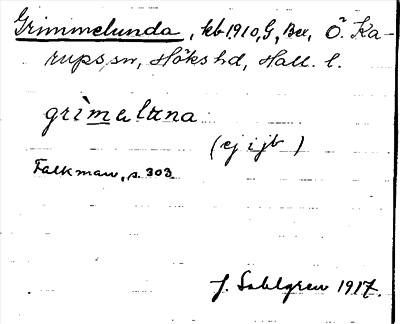 Grimmelunda, kb 1910, G, Bec, Ö. Ka-
rups sn, Höks hd, Hall. l.
grìmelųna
(ej i jb)
Falkman, s. 303
J. Sahlgren 1917.